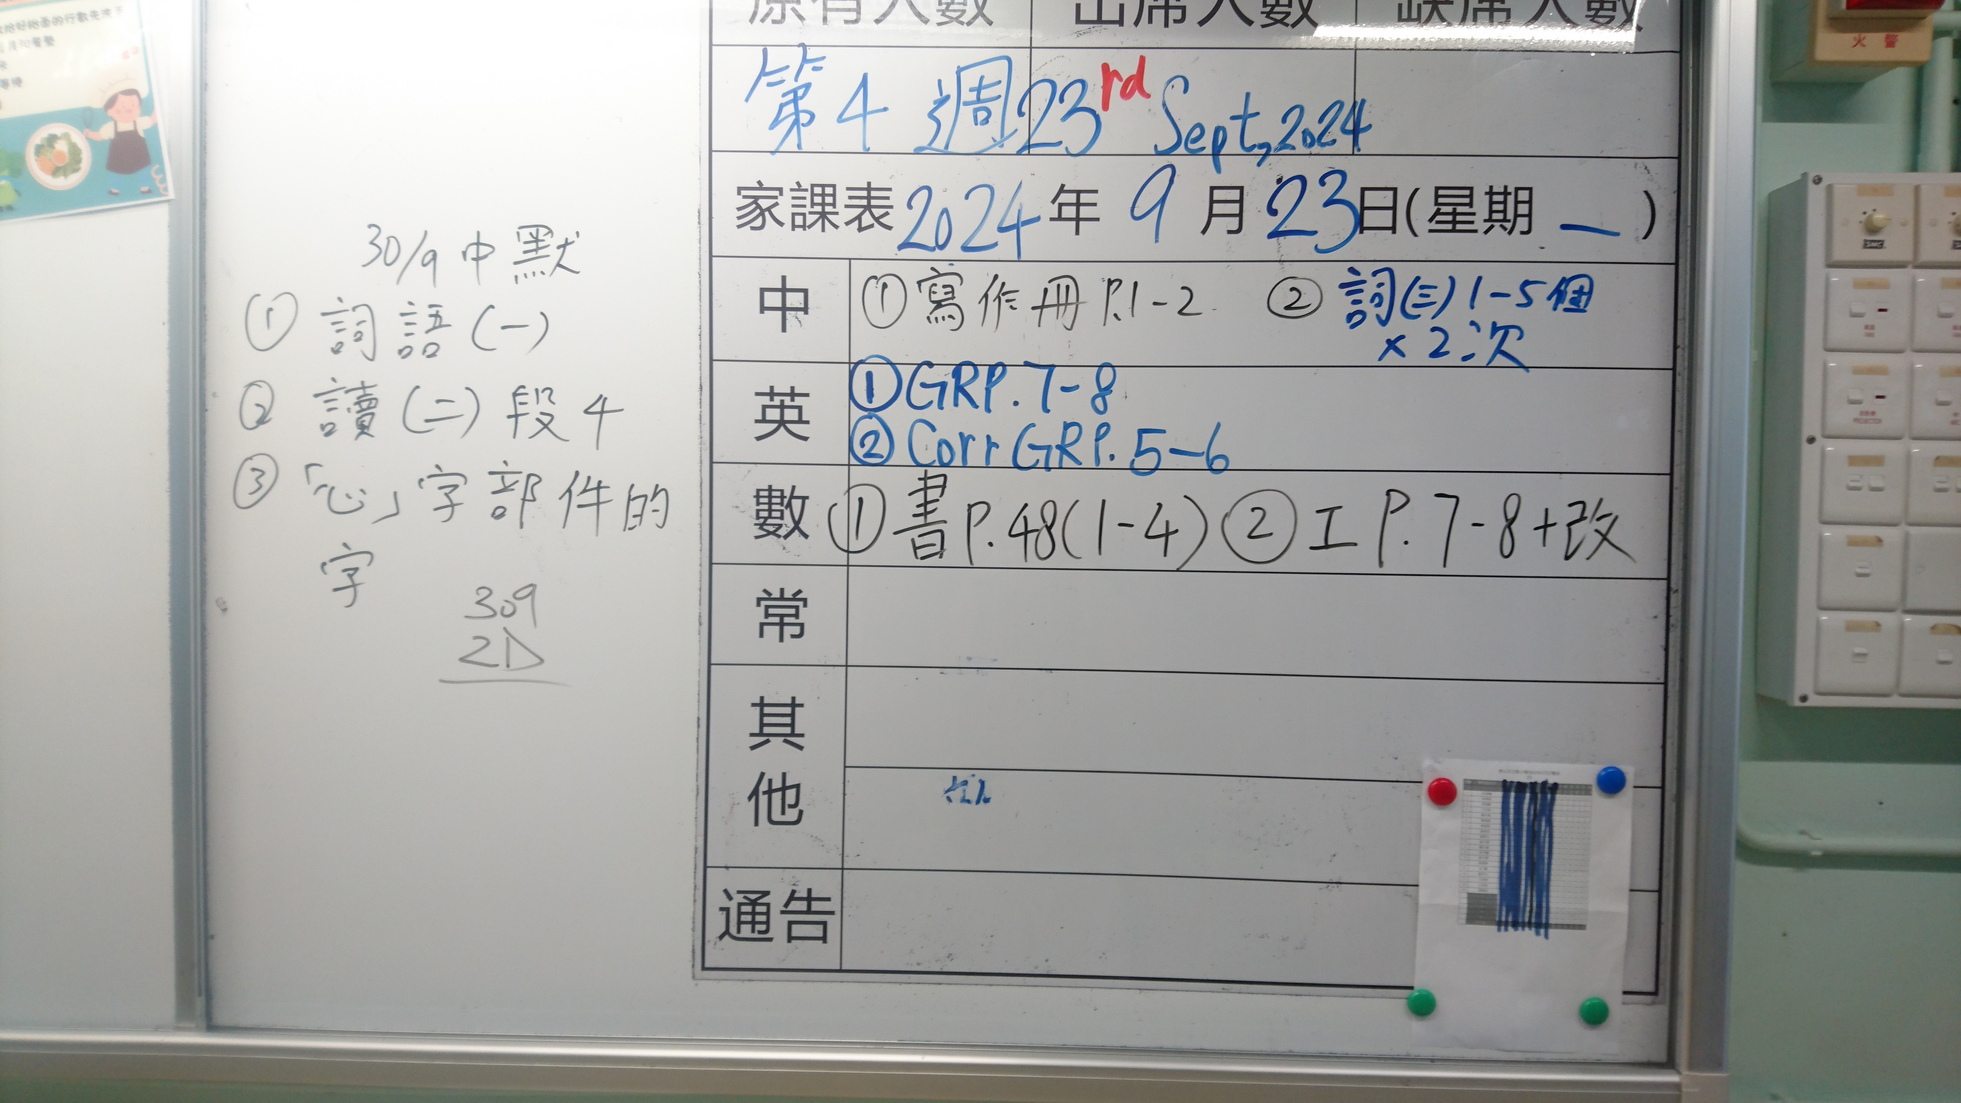 原有人數 出席人數 缺席人數
第4週 23rd Sept, 2024
家課表 2024年9月23日(星期一)
中 ①寫作冊P.1-2 ②詞(三)1-5個
×2次
英 ①GRP.7-8
②Corr GRP.5-6
數 ①書P.48(1-4) ②工P.7-8+改
常
其他
通告
30/9中默
①詞語(一)
②讀(二)段4
③「心」字部件的
字
309
2D
火警